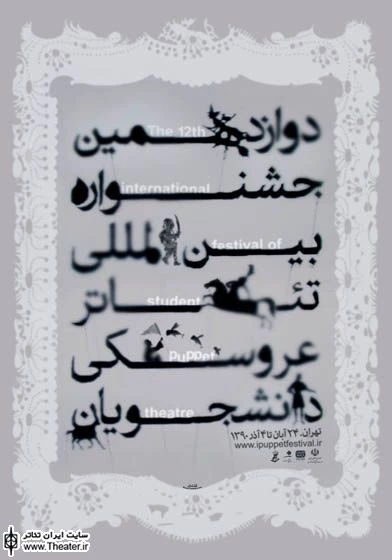 دوازدهمین
The 12th
جشنواره
international
بین المللی
festival of
تئاتر
student
عروسکی
puppet
دانشجویان
theatre
تهران، ۲۴ آبان تا ۴ آذر ۱۳۹۰
www.ipuppetfestival.ir
سایت ایران تئاتر
www.Theater.ir